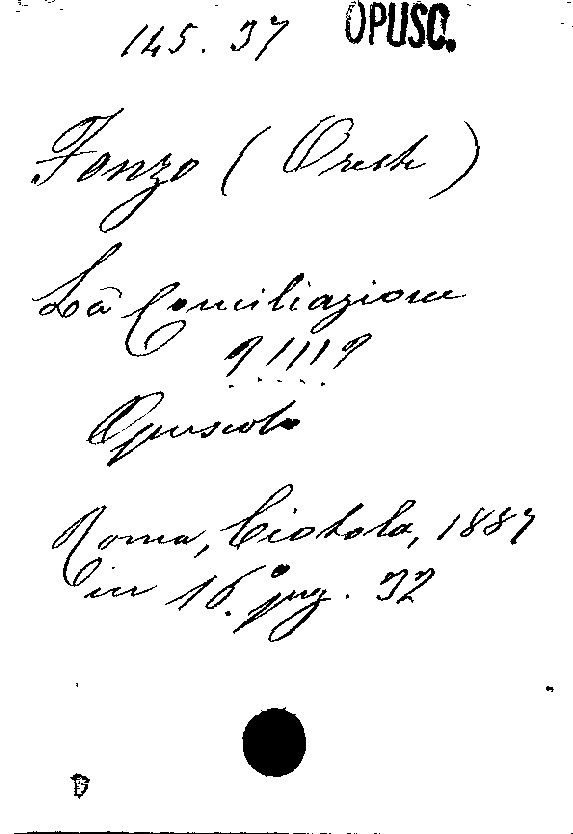 145.37 OPUSC.
Fonzo (Oreste)
La Conciliazione
?!!!?
.....
Opuscolo
Roma, Ciotola, 1887
in 16.° pag. 32